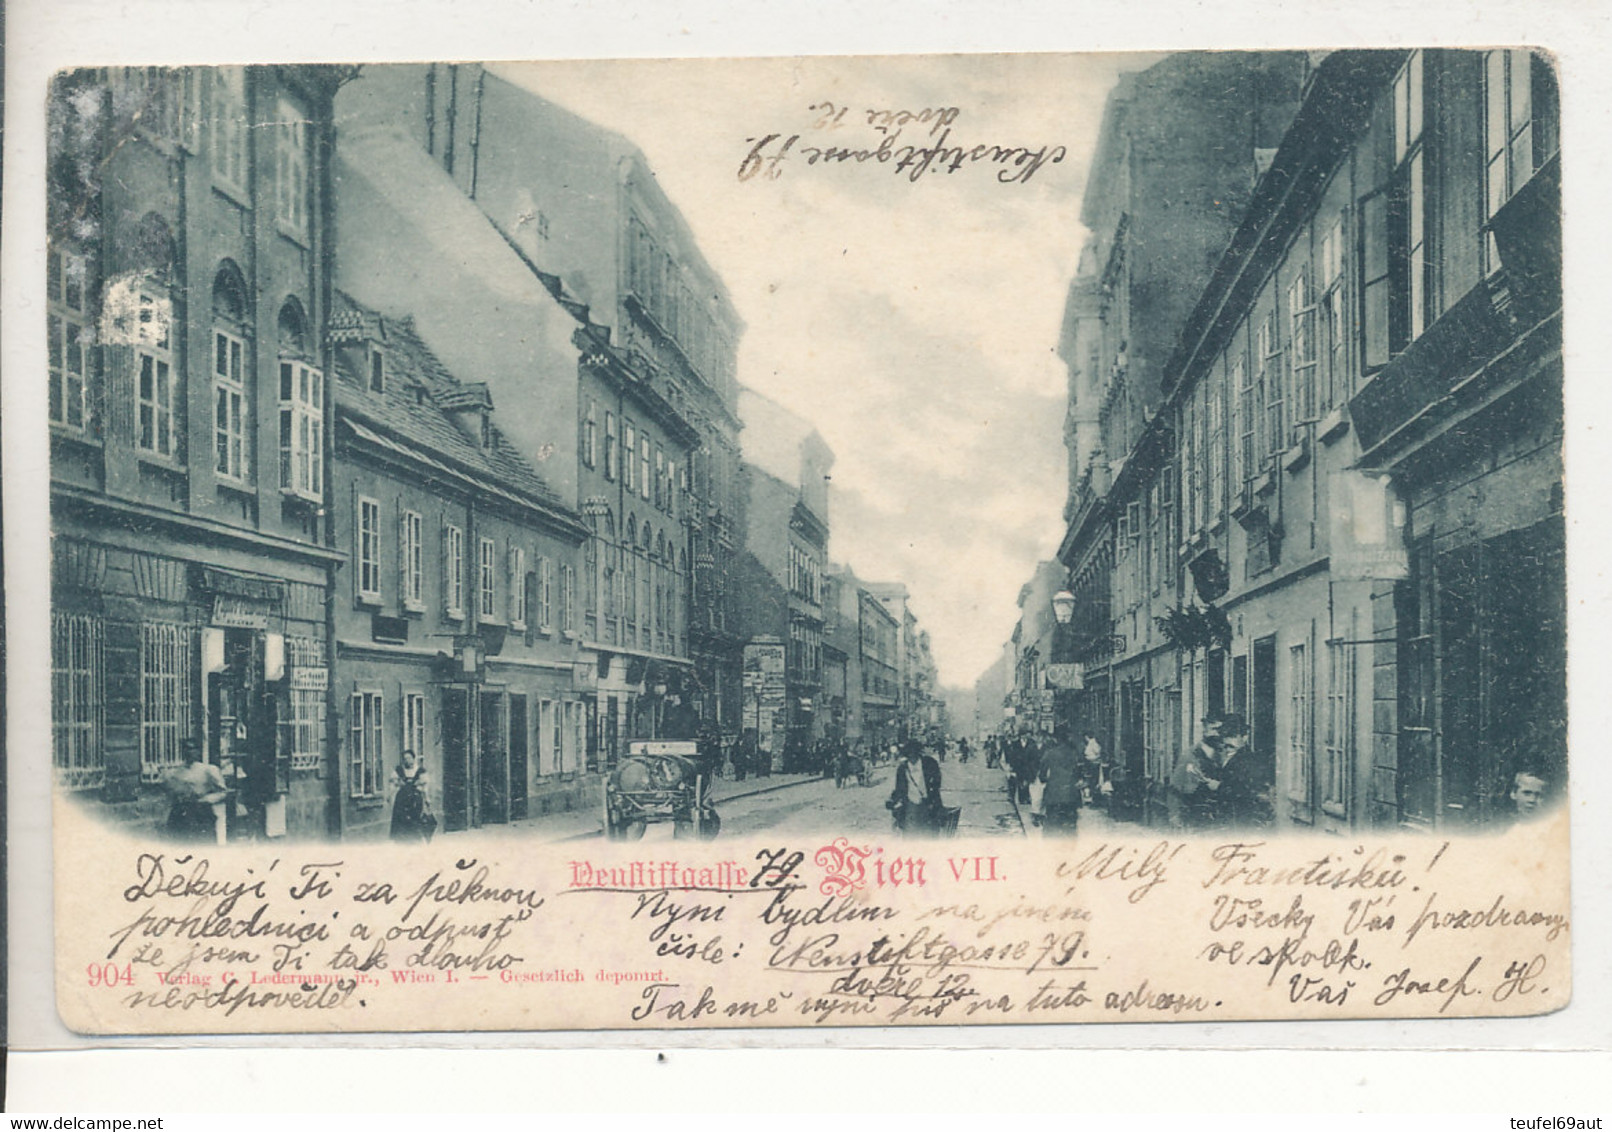 Neustiftgasse 79.
dveře 12.
Neustiftgasse 79. Wien VII.
Milý Františku!
Děkuji Ti za pěknou
pohlednici a odpusť
že jsem Ti tak dlouho
neodpověděl.
Nyni bydlim na jiném
čisle: Neustiftgasse 79.
dveře 12
Tak mě nyni piš na tuto adresu.
Všecky Vás pozdravuj
ve spolk.
Váš Josef. H.
904 Verlag C. Ledermann jr., Wien I. — Gesetzlich deponirt.
teufel69aut